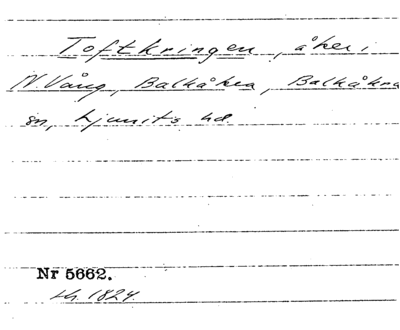 Toftkringen, åker i
N. Vång, Balkåkra, Balkåkra
sn, Ljunits hd
Nr 5662.
Lh. 1824.